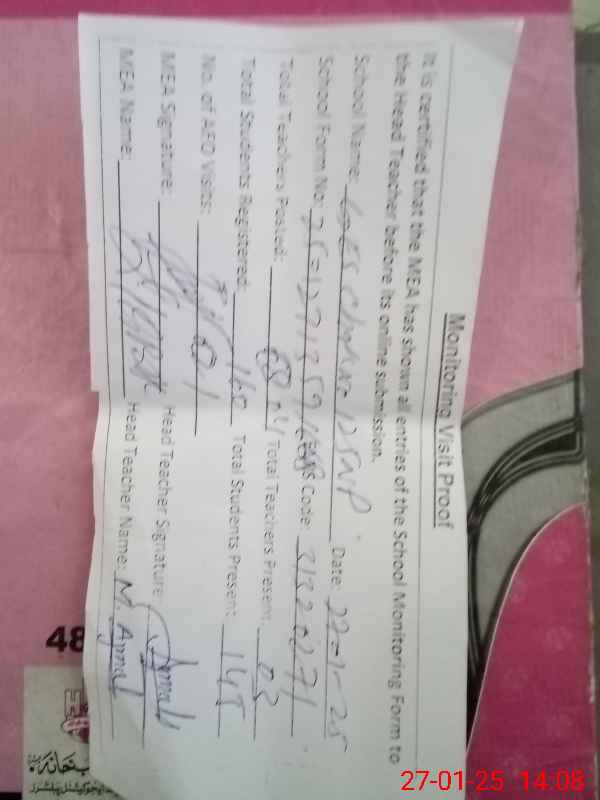 Monitoring Visit Proof
It is certified that the MEA has shown all entries of the School Monitoring Form to
the Head Teacher before its online submission.
School Name: GPES Chak No 125 NP Date: 22-1-25
School Form No: Code: 31320271
Total Teachers Posted: 04 Total Teachers Present: 03
Total Students Registered: 160 Total Students Present: 145
No. of AEO Visits: 01
MEA Signature: Head Teacher Signature: Ajmal
MEA Name: Head Teacher Name: M. Ajmal
48
27-01-25 14:08